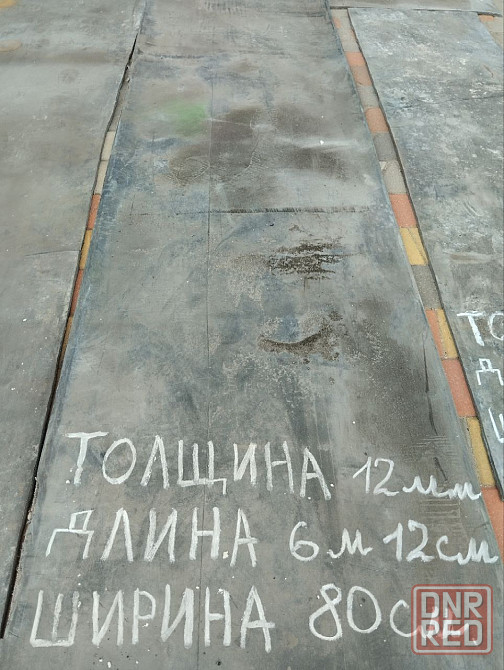 ТОЛЩИНА 12мм
ДЛИНА 6м 12см
ШИРИНА 80см
ТО
Д
Ш
DNR
RED